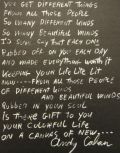 YOU GET DIFFERENT THINGS
FROM ALL THOSE PEOPLE
SO MANY DIFFERENT MINDS
SO MANY BEAUTIFUL MINDS
I'D SURE SAY THAT EACH ONE
RUBBED OFF ON YOU EVERY DAY
AND MADE EVERYTHING WORTH IT
KEEPING YOUR LIFE LITE LIT
NOW....FROM ALL THOSE PEOPLE
OF DIFFERENT MINDS
AND BEAUTIFUL MINDS
RUBBED IN YOUR SOUL
IS THERE GIFT TO YOU
YOUR COLORFUL LIFE
ON A CANVAS OF NEW...
Andy